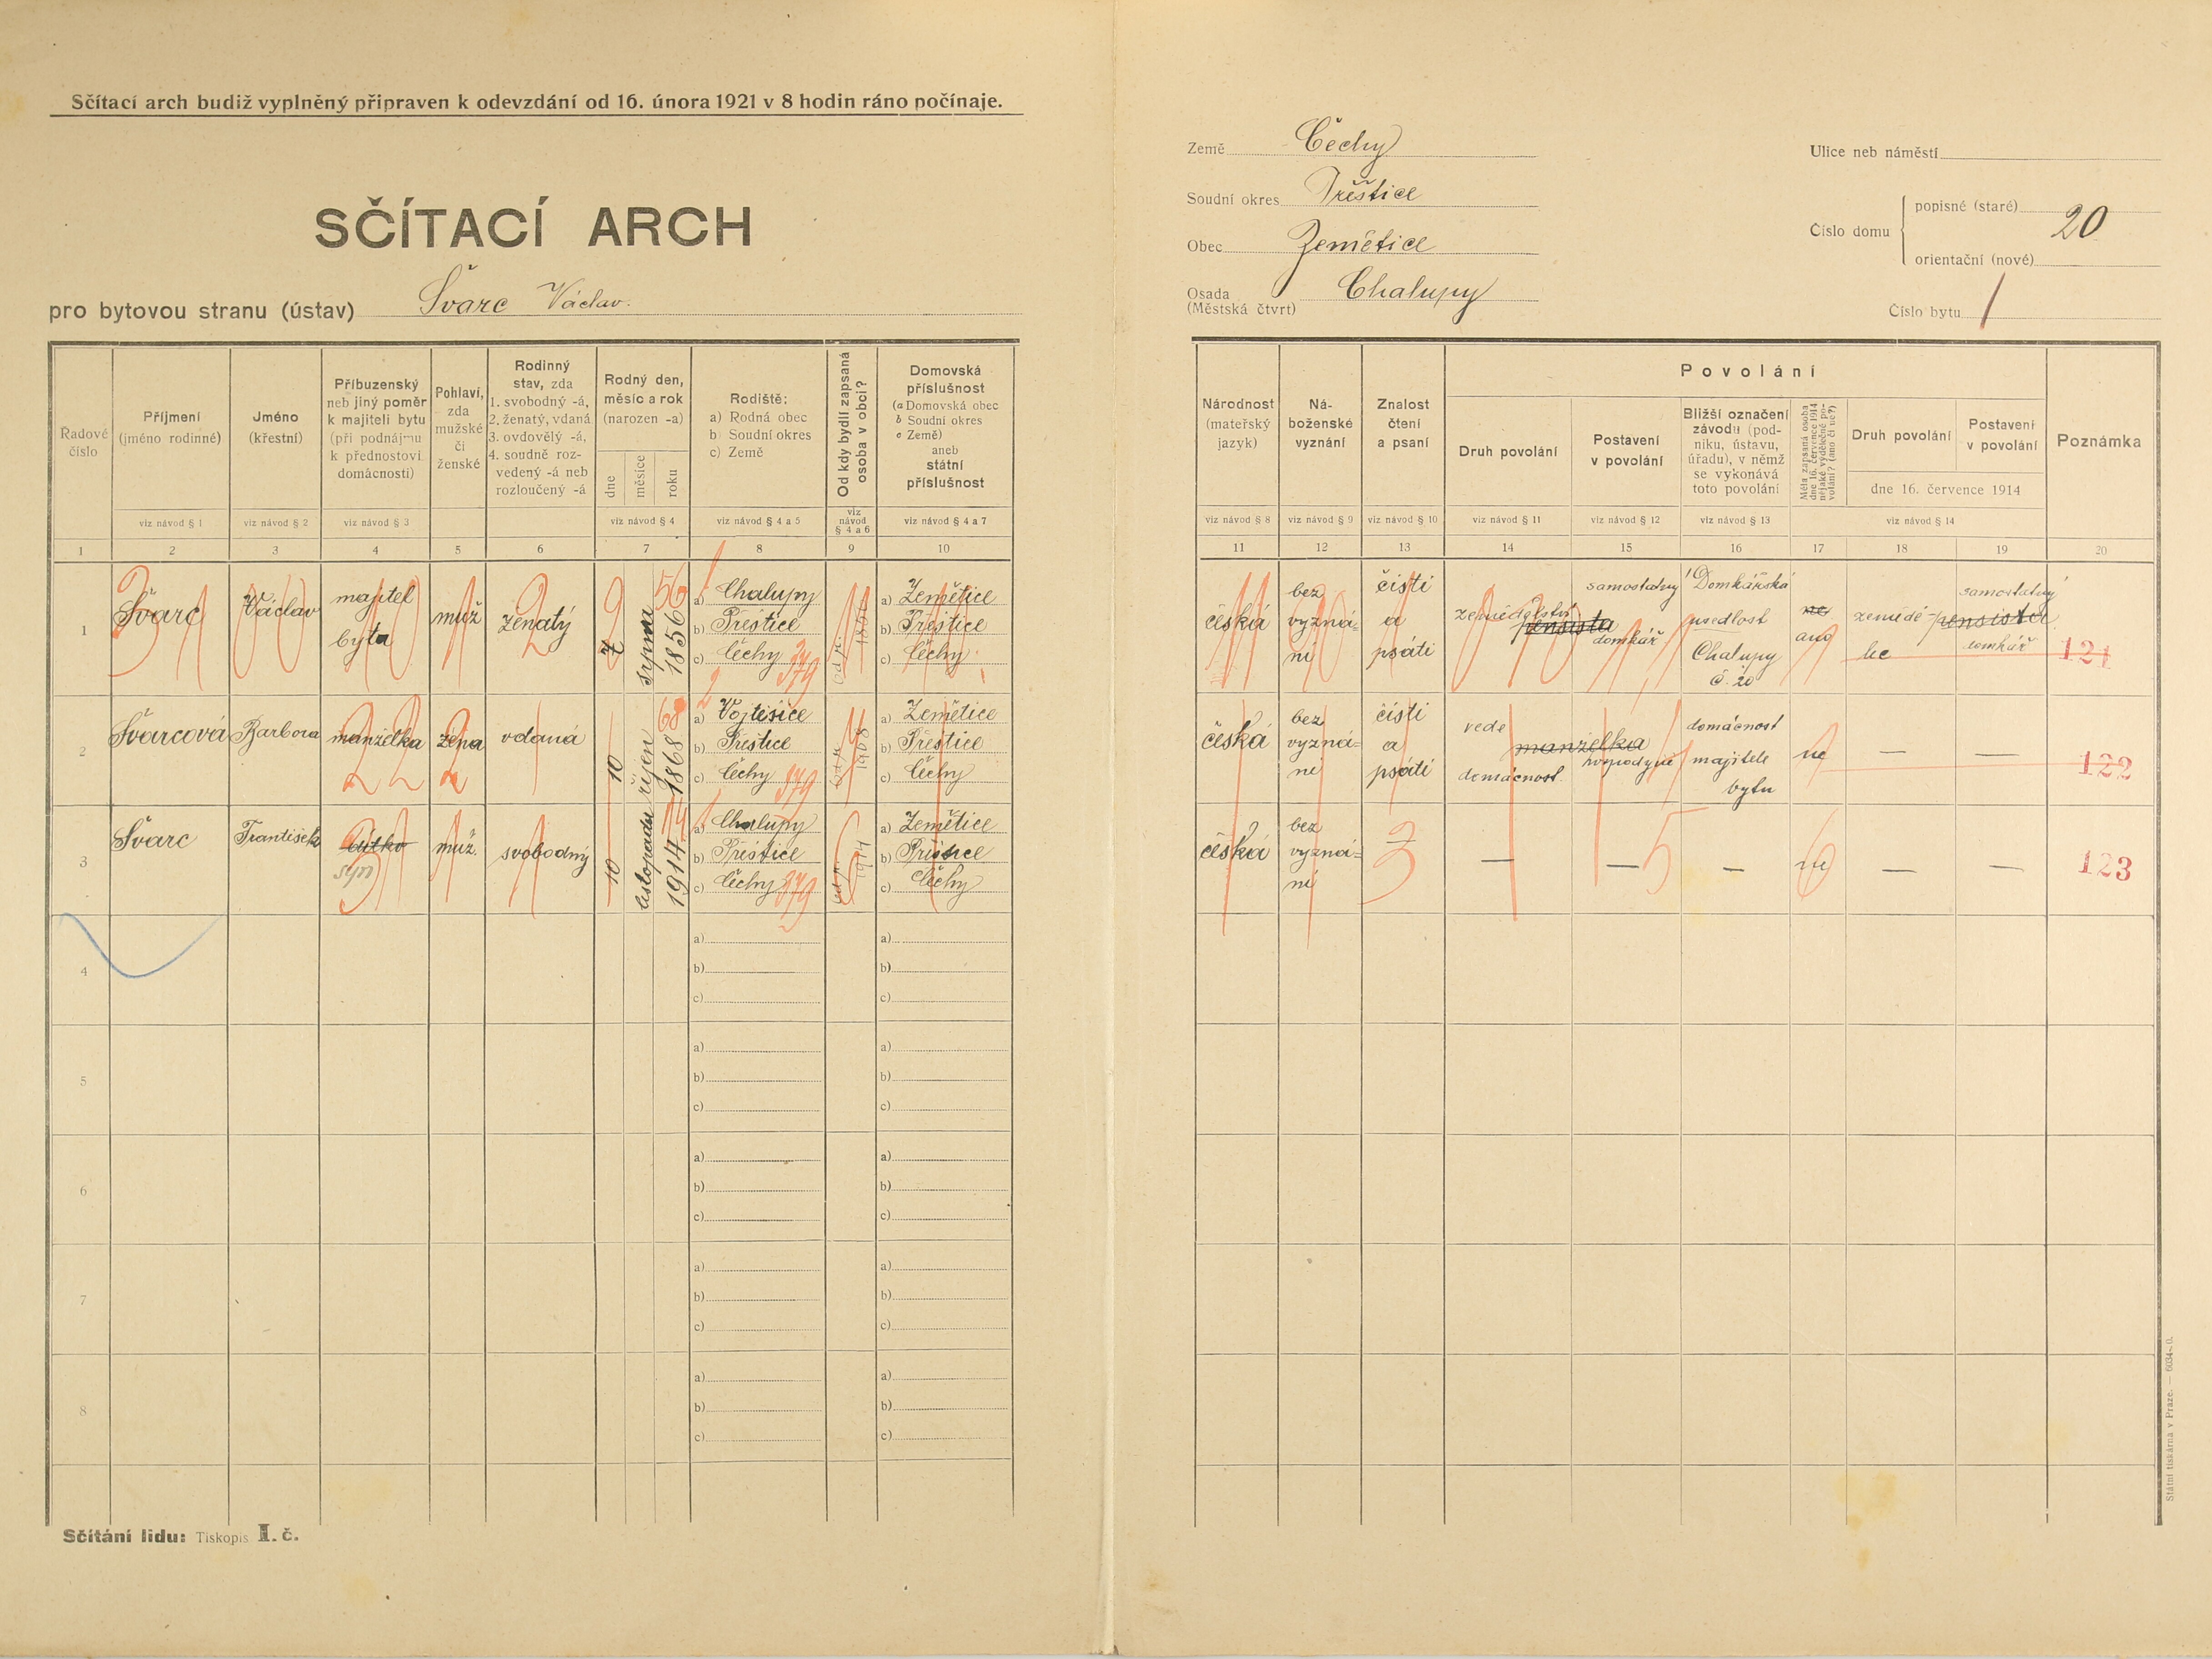 Sčítací arch budiž vyplněný připraven k odevzdání od 16. února 1921 v 8 hodin ráno počínaje.
SČÍTACÍ ARCH
pro bytovou stranu (ústav) Švarc Václav.
Země Čechy
Soudní okres Přeštice
Obec Zemětice
Osada (Městská čtvrt) Chalupy
Ulice neb náměstí
Číslo domu
popisné (staré) 20
orientační (nové)
Číslo bytu 1
Řadové číslo
Příjmení (jméno rodinné)
Jméno (křestní)
Příbuzenský neb jiný poměr k majiteli bytu (při podnájmu k přednostovi domácnosti)
Pohlaví, zda mužské či ženské
Rodinný stav, zda 1. svobodný -á, 2. ženatý, vdaná 3. ovdovělý -á, 4. soudně rozvedený -á neb rozloučený -á
Rodný den, měsíc a rok (narozen -a)
dne měsíce roku
Rodiště: a) Rodná obec b) Soudní okres c) Země
Od kdy bydlí zapsaná osoba v obci?
Domovská příslušnost (a Domovská obec b Soudní okres c Země) aneb státní příslušnost
Národnost (mateřský jazyk)
Náboženské vyznání
Znalost čtení a psaní
Povolání
Druh povolání
Postavení v povolání
Bližší označení závodu (podniku, ústavu, úřadu), v němž se vykonává toto povolání
Měla zapsaná osoba dne 16. července 1914 nějaké výdělečné povolání? (ano či ne?)
Druh povolání
Postavení v povolání
dne 16. července 1914
Poznámka
viz návod § 1 viz návod § 2 viz návod § 3 viz návod § 4 viz návod § 4 a 5 viz návod § 4 a 6 viz návod § 4 a 7
viz návod § 8 viz návod § 9 viz návod § 10 viz návod § 11 viz návod § 12 viz návod § 13 viz návod § 14
1 2 3 4 5 6 7 8 9 10
11 12 13 14 15 16 17 18 19 20
1 Švarc Václav majitel bytu muž ženatý 7 srpna 1856 56
a) Chalupy
b) Přeštice
c) Čechy 379
a) Zemětice
b) Přeštice
c) Čechy
česká bez vyznání čísti a psáti zemědělství pensista samostatný domkář Domkářská usedlost Chalupy č. 20 ne ano zemědělec pensista samostatný domkář 121
2 Švarcová Barbora manželka žena vdaná 10 říjen 1868 68
a) Vojtěšice
b) Přeštice
c) Čechy 379
od 1908
a) Zemětice
b) Přeštice
c) Čechy
česká bez vyznání čísti a psáti vede domácnost manželka domácnost majitele bytu ne — — 122
3 Švarc František dítko syn muž. svobodný 10 listopadu 1914 14
a) Chalupy
b) Přeštice
c) Čechy 379
1914
a) Zemětice
b) Přeštice
c) Čechy
česká bez vyznání — — 5 — ne — — 123
4
a) b) c)
a) b) c)
5
a) b) c)
a) b) c)
6
a) b) c)
a) b) c)
7
a) b) c)
a) b) c)
8
a) b) c)
a) b) c)
Sčítání lidu: Tiskopis I. č.
Státní tiskárna v Praze. — 6034-20.